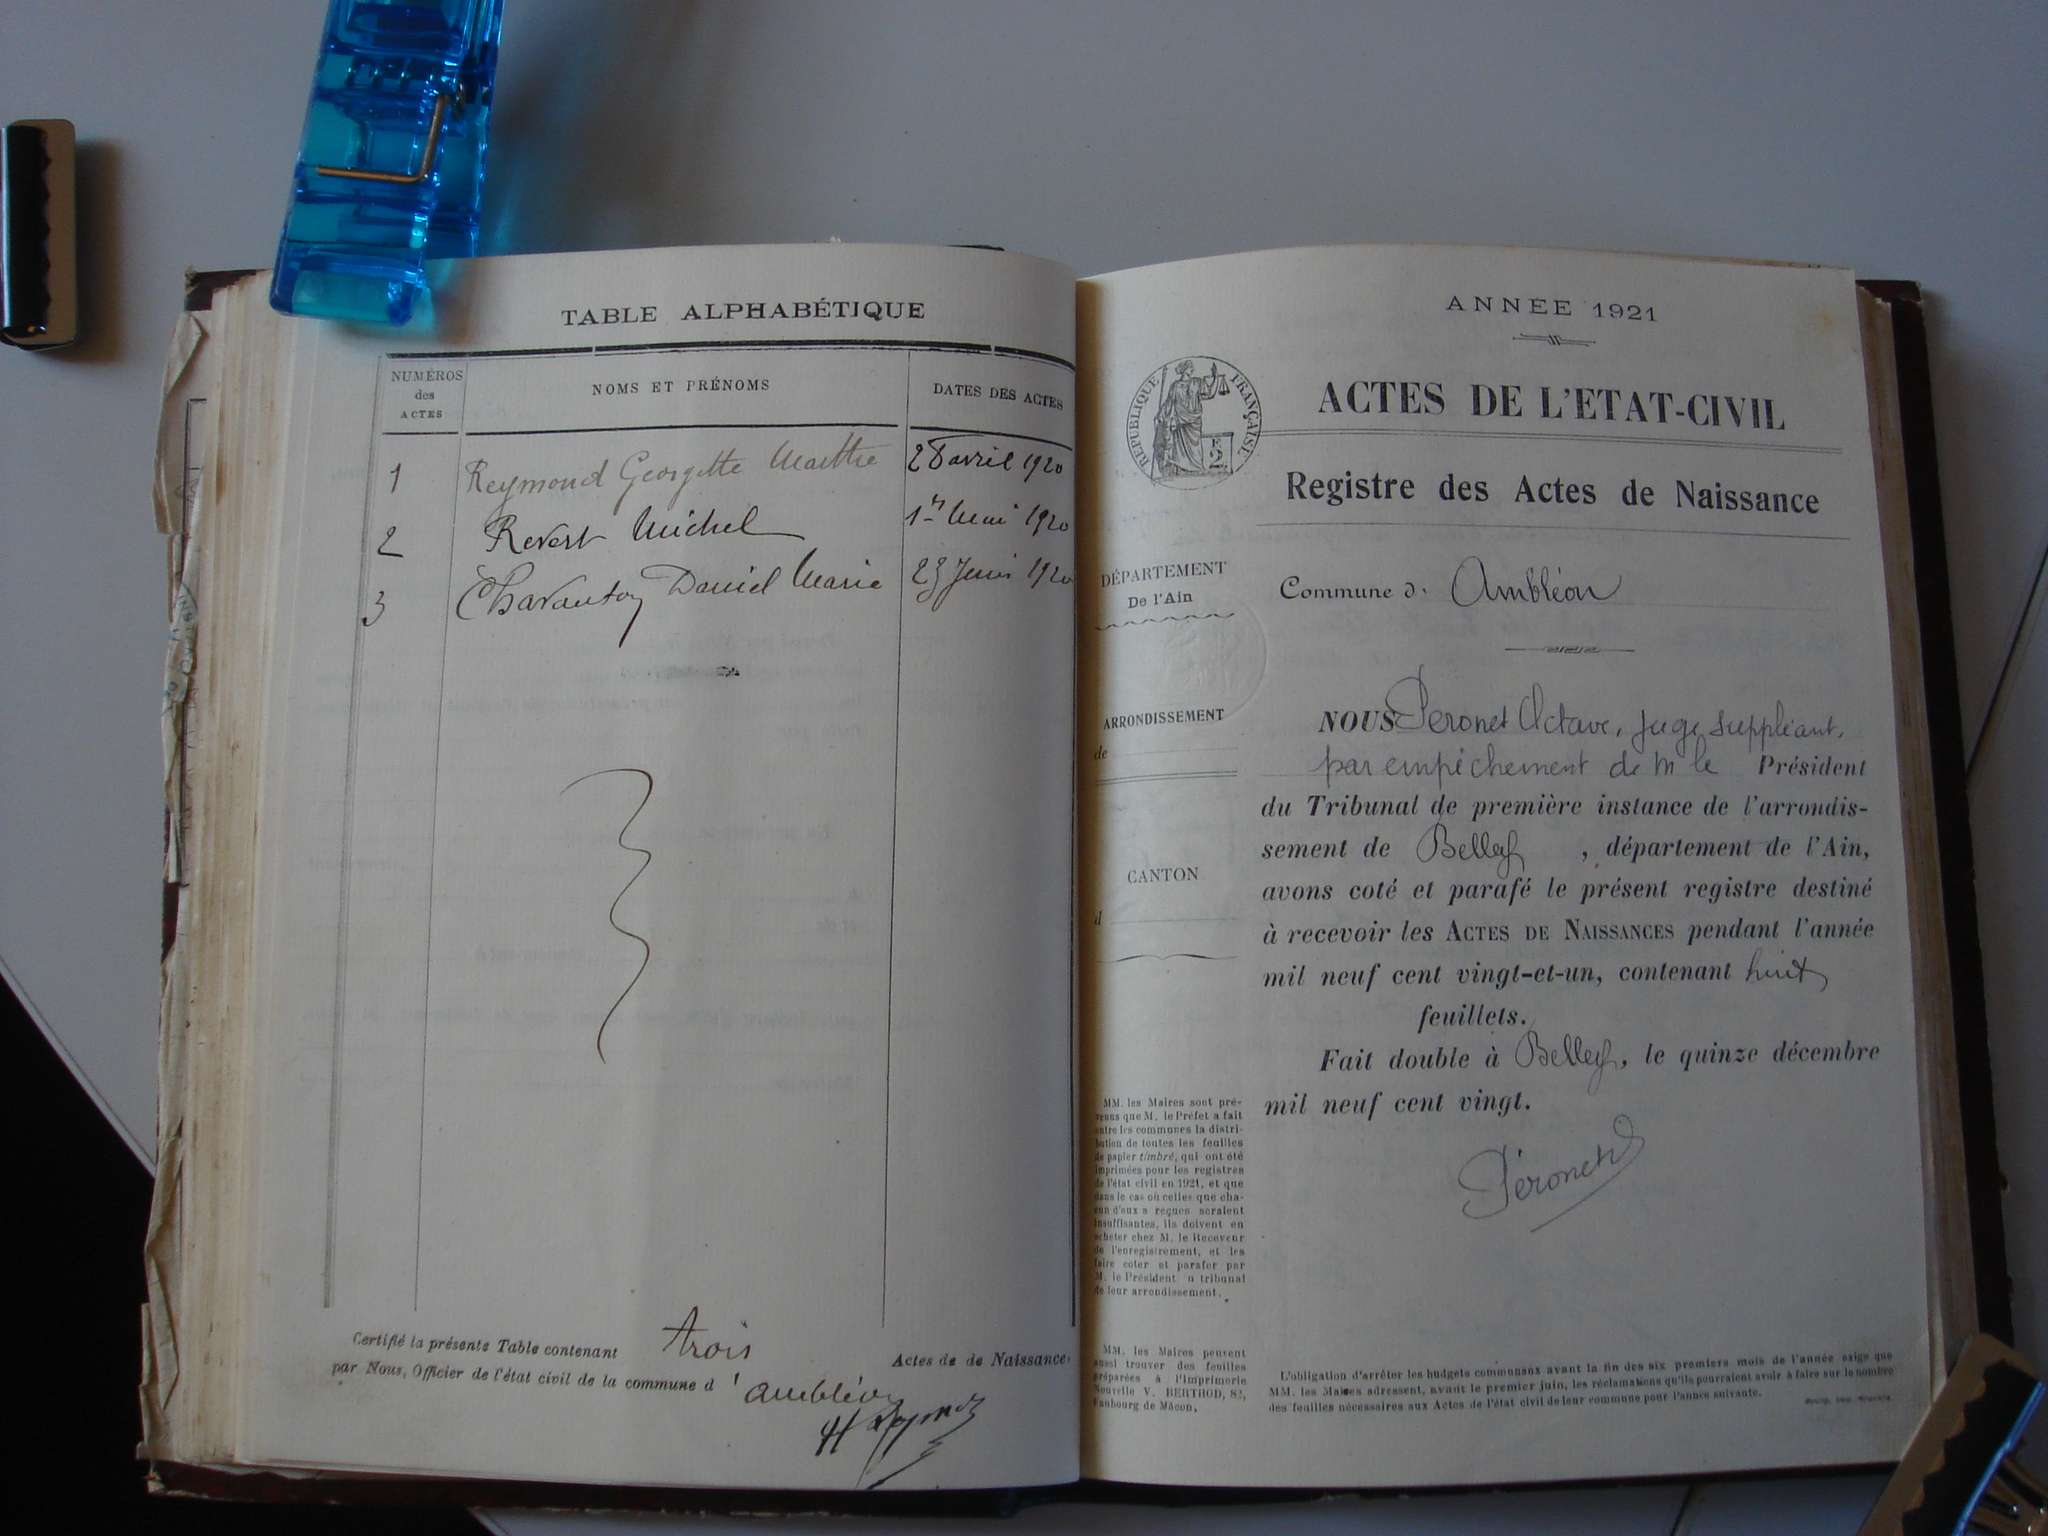 TABLE ALPHABÉTIQUE
NUMÉROS
des
ACTES
NOMS ET PRÉNOMS
DATES DES ACTES
1 Reymond Georgette Marthe 28 avril 1920
2 Revert Michel 1er Mai 1920
3 Daniel Marie 23 Juin 1920
Certifié la présente Table contenant trois Actes de de Naissance
par Nous, Officier de l'état civil de la commune d' ambléon
ANNÉE 1921
RÉPUBLIQUE FRANÇAISE
2
ACTES DE L'ETAT-CIVIL
Registre des Actes de Naissance
DÉPARTEMENT
De l'Ain
ARRONDISSEMENT
de
CANTON
d
Commune d' Ambléon
NOUS Péronet Octave, juge suppléant,
par empêchement de M le Président
du Tribunal de première instance de l'arrondis-
sement de Belley, département de l'Ain,
avons coté et parafé le présent registre destiné
à recevoir les ACTES DE NAISSANCES pendant l'année
mil neuf cent vingt-et-un, contenant huit
feuillets.
Fait double à Belley, le quinze décembre
mil neuf cent vingt.
Péronet
MM. les Maires sont pré-
venus que M. le Préfet a fait
entre les communes la distri-
bution de toutes les feuilles
de papier timbré, qui ont été
imprimées pour les registres
de l'état civil en 1921, et que
dans le cas où celles que cha-
cun d'eux a reçues seraient
insuffisantes, ils doivent en
acheter chez M. le Receveur
de l'enregistrement, et les
faire coter et parafer par
M. le Président u tribunal
de leur arrondissement.
MM. les Maires peuvent
aussi trouver des feuilles
préparées à l'Imprimerie
Nouvelle V. BERTHOD, 82,
Faubourg de Mâcon.
L'obligation d'arrêter les budgets communaux avant la fin des six premiers mois de l'année exige que
MM. les Maires adressent, avant le premier juin, les réclamations qu'ils pourraient avoir à faire sur le nombre
des feuilles nécessaires aux Actes de l'état civil de leur commune pour l'année suivante.